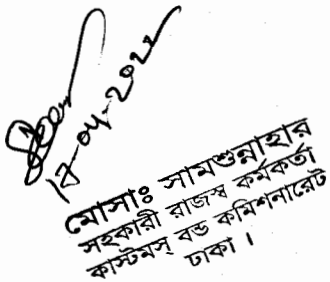 মোসাঃ সামশুন্নাহার
সহকারী রাজস্ব কর্মকর্তা
কাস্টমস্ বন্ড কমিশনারেট
ঢাকা।